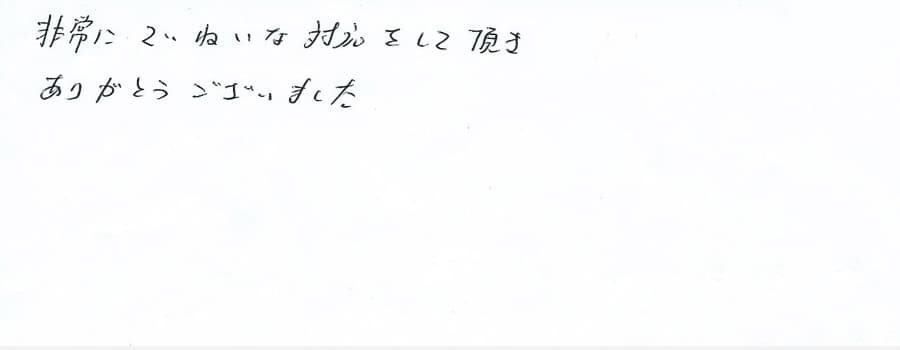 非常に ていねいな 対応をして頂き
ありがとうございました